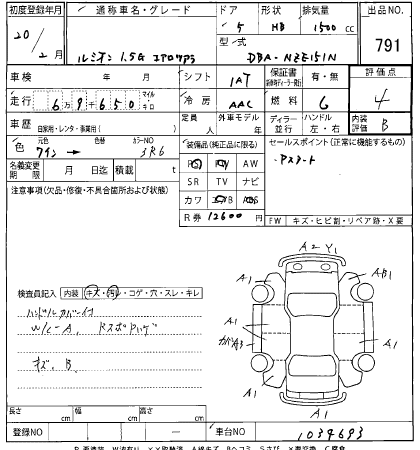 初度登録年月 通称車名・グレード ドア 形状 排気量 出品NO
20/2月 ルミオン 1.5G エアロツアラ 5 HB 1500cc 791
型式 DBA-NZE151N
車検 年 月 シフト IAT 保証書 有・無 評価点
走行 6万9千650 マイル キロ 冷房 AAC 燃料 G 4
車歴 自家用・レンタ・事業用( ) 定員 人 外車モデル 年 ディーラー 並行 ハンドル 左・右 内装評価 B
色 元色 ワイン→ 色替 カラーNO 3R6 装備品(純正品に限る) セールスポイント(正常に機能するもの)
名義変更期限 月 日迄 積載 t PS PW AW Pスタート
注意事項(欠品・修復・不具合箇所および状態) SR TV ナビ
カワ エアB ABS
R券 12600円 FW キズ・ヒビ割・リペア跡・X要
A2 Y1
A1 AB1
検査員記入 内装 キズ・汚れ・コゲ・穴・スレ・キレ
ハンドルカバーイタ A1
W/C-A RスポPハゲ A1 A1
キズ、B
A1 A1
A1
長さ cm 幅 cm 高さ cm
登録NO — 車台NO 1034693